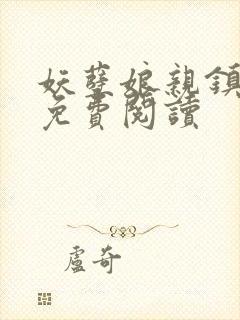 妖孽娘親鎮
免費閱讀
盧奇